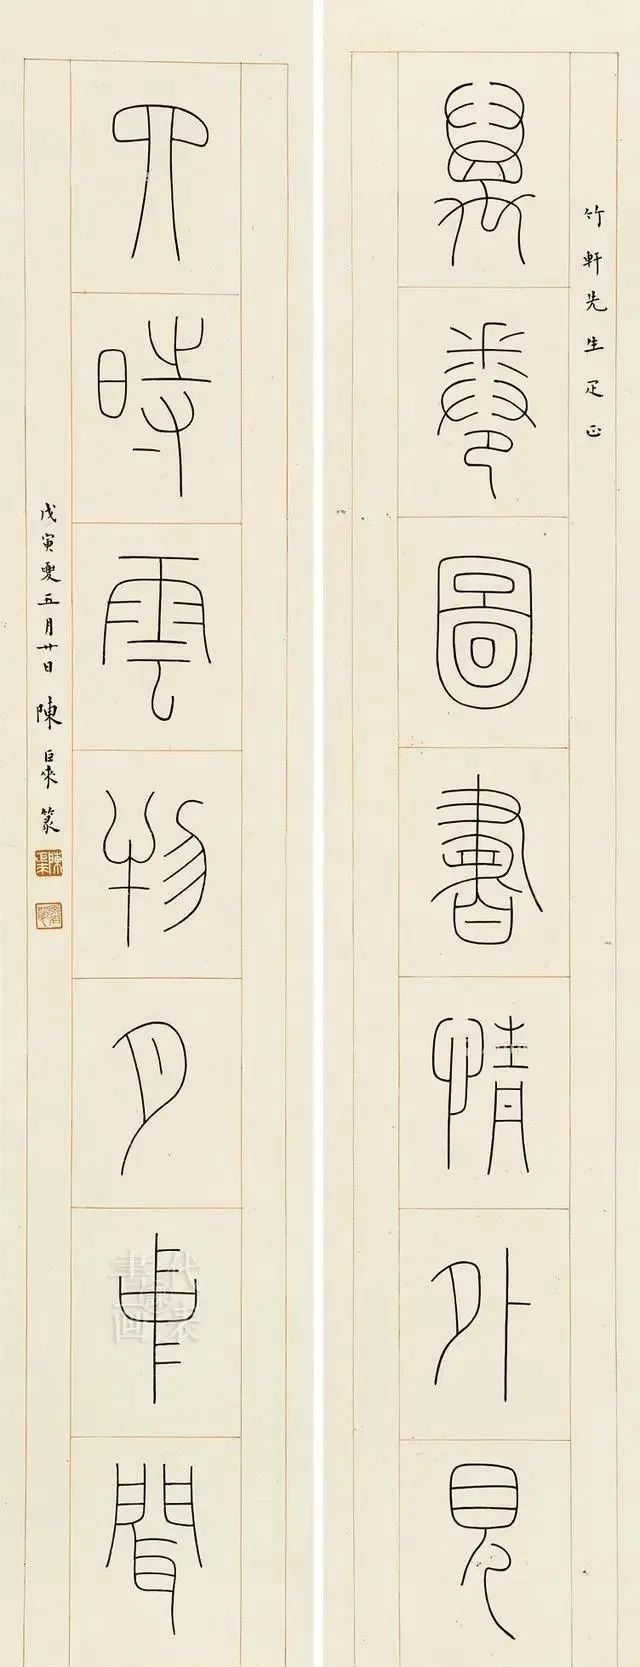 竹軒先生疋正
萬卷圖書情外見
天時雲物月中間
戊寅夏五月廿日陳巨來篆